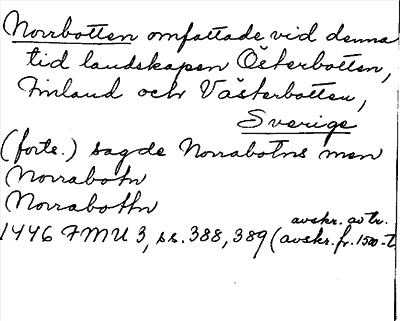 Norrbotten omfattade vid denna
tid landskapen Österbotten,
Finland och Västerbotten,
Sverige
(forts.) sagde Norrabotns men
Norrabotn
Norrabottn
avskr. av tr.
1446 FMU 3, ss. 388, 389 (avskr. fr. 1500-t